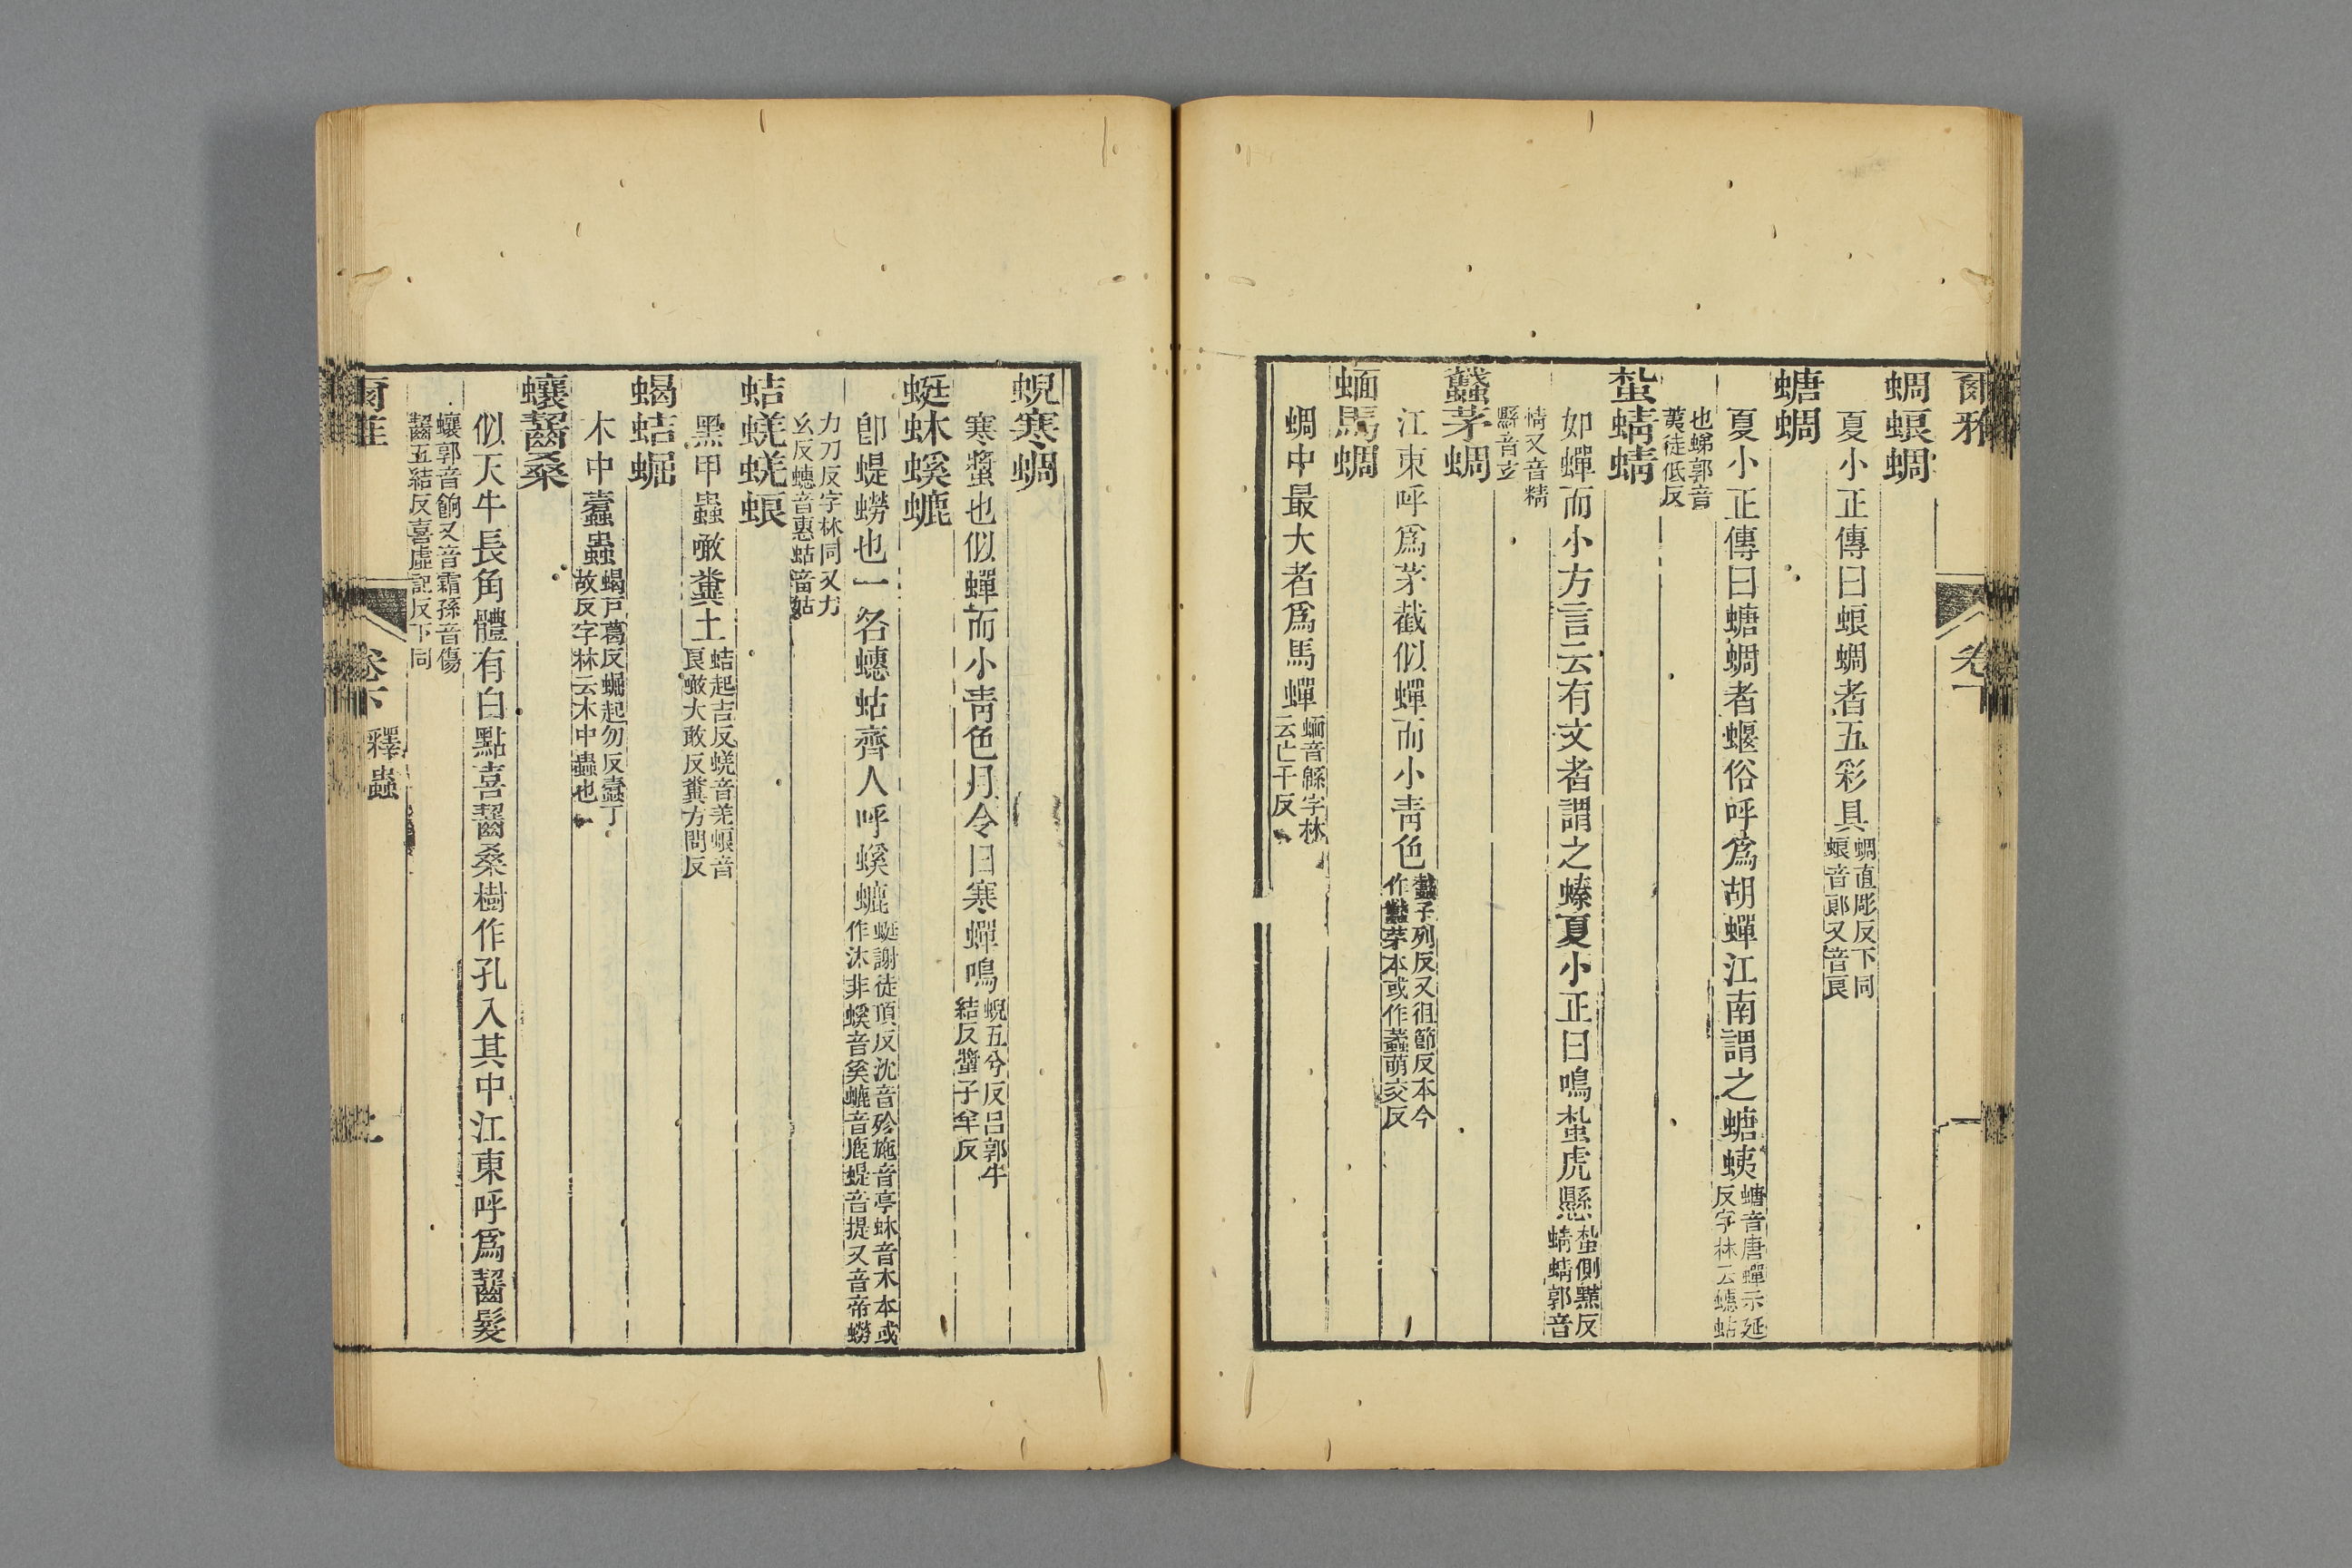 爾雅 卷下
蜩蜋蜩
夏小正傳曰蜋蜩者五彩具蜩直彫反下同
蜋音郞又音良
螗蜩
夏小正傳曰螗蜩者蝘俗呼爲胡蟬江南謂之螗蛦螗音唐蟬示延
反字林云蟪蛄
也蛦郭音
荑徒低反
蚻蜻蜻
如蟬而小方言云有文者謂之螓夏小正曰鳴蚻虎懸蚻側黠反
蜻蜻郭音
情又音精
縣音玄
蠽茅蜩
江東呼爲茅截似蟬而小青色蠽子列反又徂節反本今
作蠽茅本或作蟊萌交反
蝒馬蜩
蜩中最大者爲馬蟬蝒音緜字林
云亡千反
蜺寒蜩
寒螿也似蟬而小青色月令曰寒蟬鳴蜺五兮反呂郭牛
結反螿子羊反
蜓蚞螇螰
卽蝭蟧也一名蟪蛄齊人呼螇螰蜓謝徒頂反沈音殄施音亭蚞音木本或
作沐非螇音奚螰音鹿蝭音提又音帝蟧
力刀反字林同又力
幺反蟪音惠蛄音姑
蛣蜣蜣蜋
黑甲蟲噉糞土蛣起吉反蜣音羌蜋音
良噉大敢反糞方問反
蝎蛣𧌑
木中蠹蟲蝎戸葛反𧌑起勿反蠹丁
故反字林云木中蟲也
蠰齧桑
似天牛長角體有白點喜齧桑樹作孔入其中江東呼爲齧髮
蠰郭音餉又音霜孫音傷
齧五結反喜虛記反下同
爾雅 卷下 釋蟲